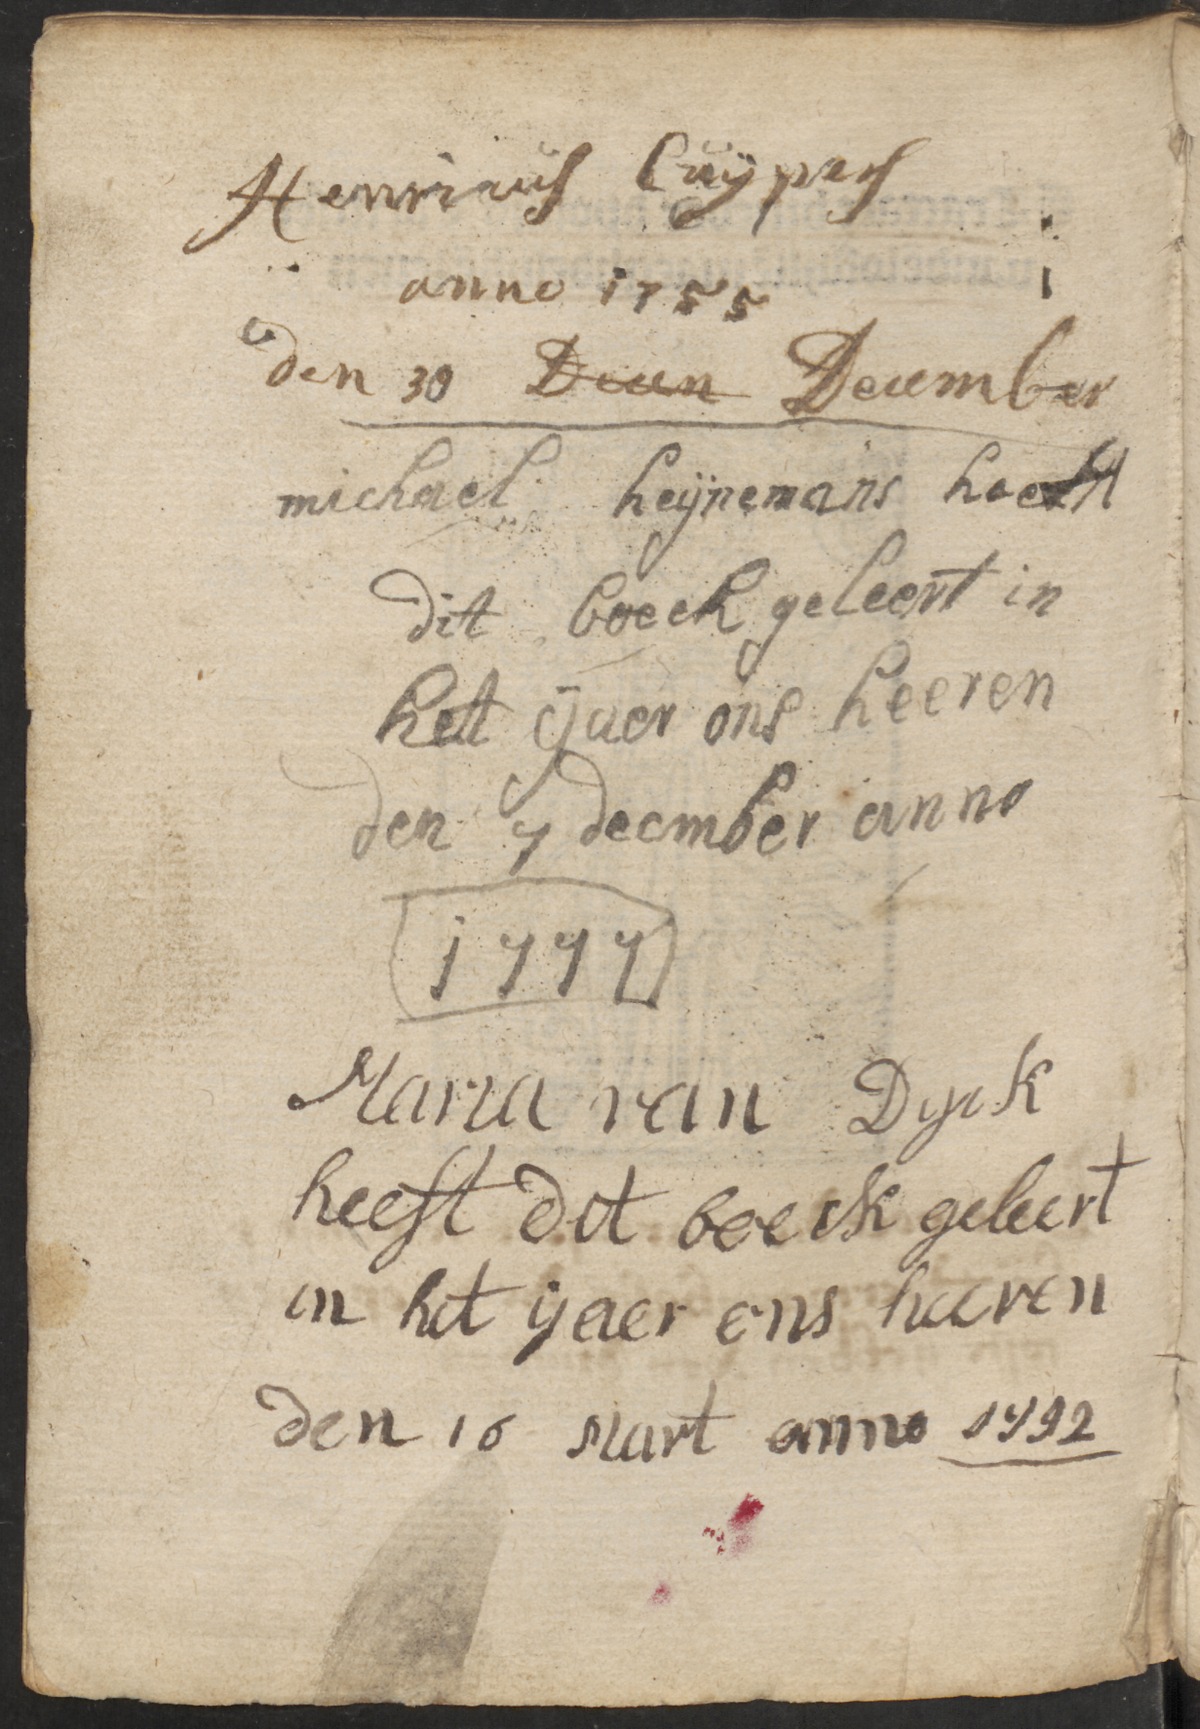 Henricus Cuÿpers
anno 1755
den 30 Decen December
michael heijnemans heeft
dit boeck geleert in
het ijaer ons heeren
den 7 decmber anno
1777
Maria van Dyck
heeft dit boeck geleert
in het ijaer ons heeren
den 16 Mart anno 1792